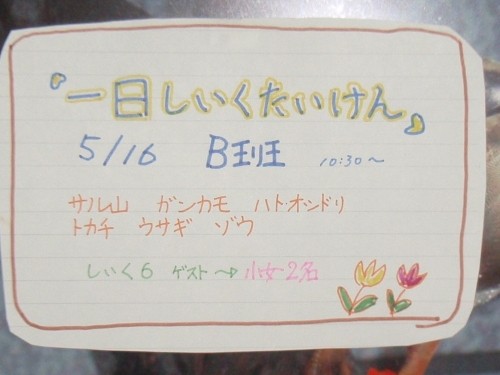 『一日しいくたいけん』
5/16 B班 10:30～
サル山 ガンカモ ハト・オシドリ
トカチ ウサギ ゾウ
しいく6 ゲスト〜→小女2名